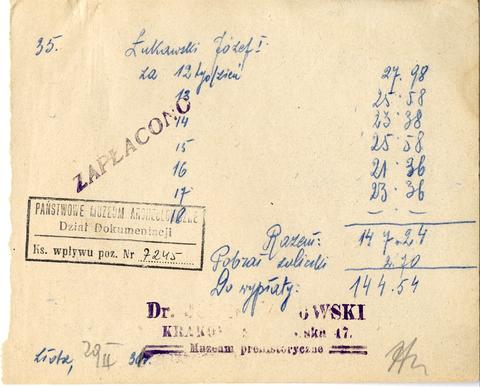 35. Łukawski Józef I
za 12 tydzień 27.98
13 25.58
14 23.38
15 25.58
16 21.36
17 23.36
18 – –
ZAPŁACONO
Razem: 147.24
Pobrał zaliczki 2.70
Do wypłaty: 144.54
PAŃSTWOWE MUZEUM ARCHEOLOGICZNE
Dział Dokumentacji
Ks. wpływu poz. Nr 7245
Dr. OWSKI
KRAKÓ ska 17.
Muzeum prehistoryczne